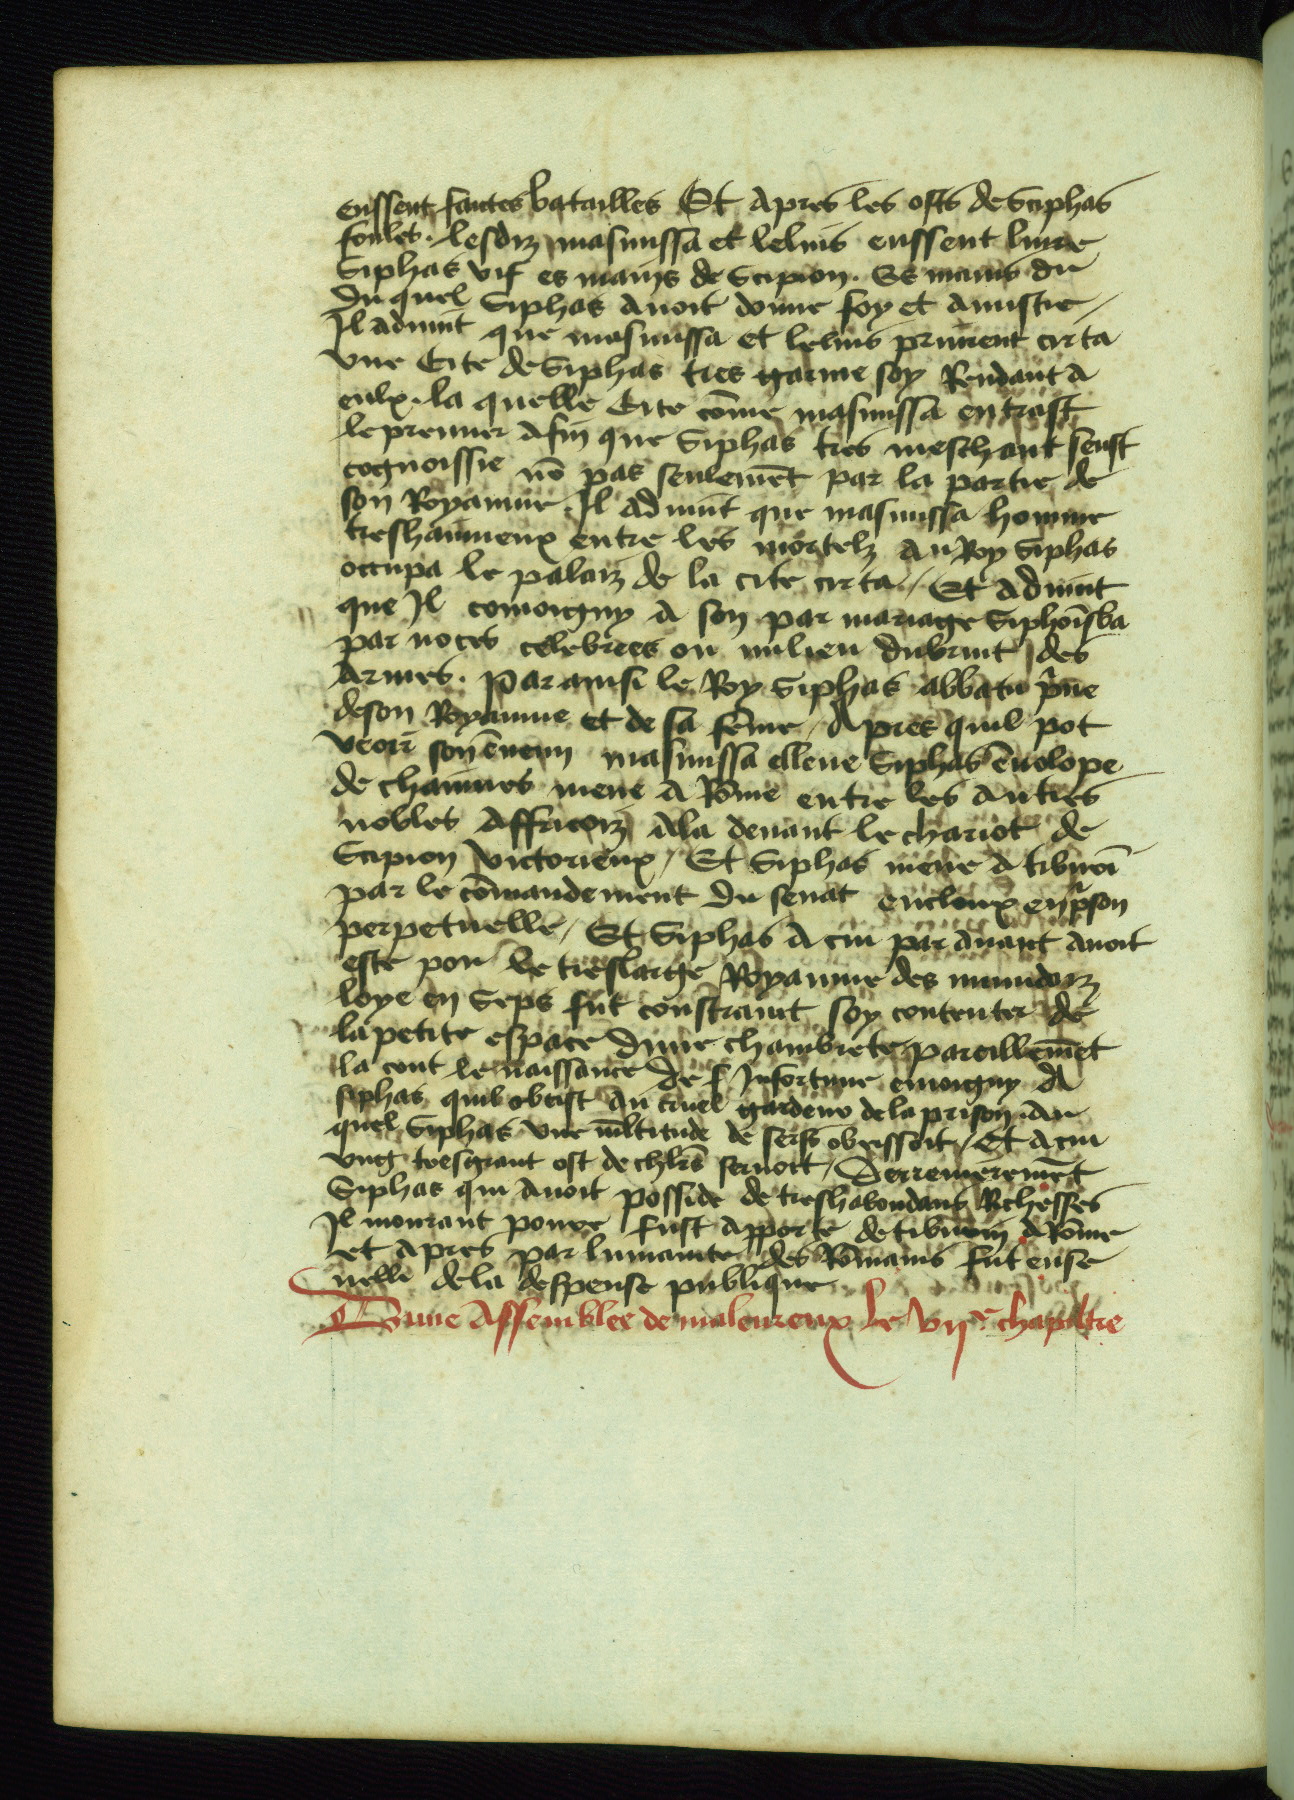 eussent faictes batailles Et apres les osts de Siphas
foules. lesdiz masinissa et lelius eussent liure
Siphas vif es mains de Scipion. Es mains du
du quel Siphas auoit donne foy et amistie /
Il aduint que masinissa et lelius prinrent cirta
vne Cite de Siphas tres garnie soy Rendant a
eulx. la quelle Cite cōme masinissa entrast
le premier afin que Siphas tres meschant seust
cognoissie nō pas seulemēt par la partie de
son Royaume. Il aduint que masinissa homme
treshaineux entre les mortelz au Roy Siphas
occupa le palaiz de la cite cirta // Et aduint
que Il conioigny a soy par mariage Siphoisba
par noces celebrees ou milieu du bruit des
Armes. Par ainsi le Roy Siphas abbatu
de son Royaume et de sa fēme / Apres quil pot
veoir son ēnemi masinissa esleue Siphas ēuelope
de chaines mene a Rōme entre les autres
nobles Affricoiz Ala deuant le chariot de
Scipion Victorieux / Et Siphas mene a tiburī
par le cōmandement du senat encloux en prison
perpetuelle / Et Siphas a cui par auant auoit
este pou le treslarge Royaume des numidoiz
loye en Seps fut constraint soy contenter de
la petite espace dune chambrete pareillemēt
la cont le naissance de Infortune enioigny a
siphas quil obeist au cruel gardeur de la prison. Au
quel Siphas vne mltitude de serfs obeissoit / Et a cui
vng tresgrant ost de chlrs seruoit / Derrenieremēt
Siphas qui auoit posside de treshabondans Richesses
Il mourant poure fust apporte de tiburim a Rōme
et apres par lumanite des Rōmains fut ense
uelli de la despense publique
Dune Assemblee de maleureux Le vije chapiltre